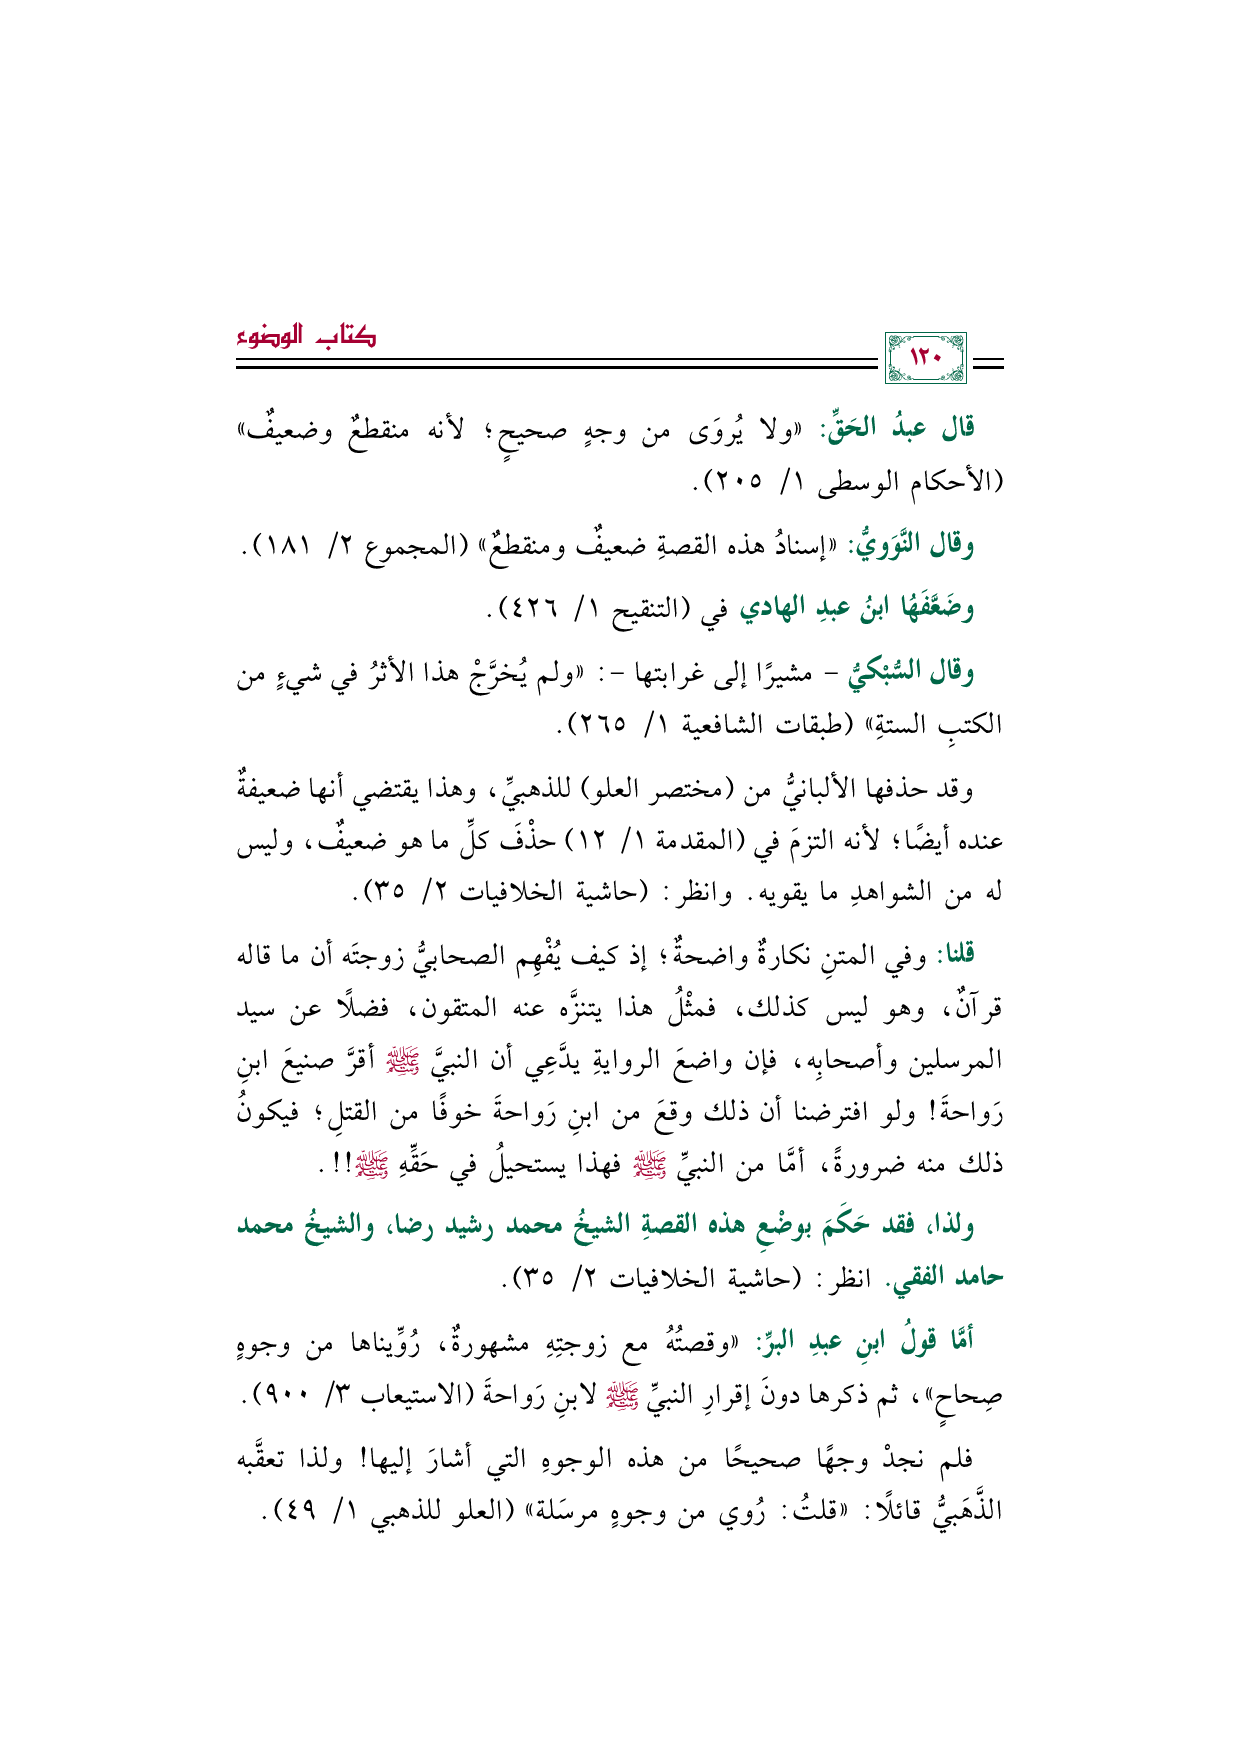 كتاب الوضوء
١٢٠
قال عبدُ الحَقِّ: «ولا يُروَى من وجهٍ صحيحٍ؛ لأنه منقطعٌ وضعيفٌ»
(الأحكام الوسطى ١/ ٢٠٥).
وقال النَّوَويُّ: «إسنادُ هذه القصةِ ضعيفٌ ومنقطعٌ» (المجموع ٢/ ١٨١).
وضَعَّفَهُا ابنُ عبدِ الهادي في (التنقيح ١/ ٤٢٦).
وقال السُّبْكيُّ - مشيرًا إلى غرابتها -: «ولم يُخرَّجْ هذا الأثرُ في شيءٍ من
الكتبِ الستةِ» (طبقات الشافعية ١/ ٢٦٥).
وقد حذفها الألبانيُّ من (مختصر العلو) للذهبيِّ، وهذا يقتضي أنها ضعيفةٌ
عنده أيضًا؛ لأنه التزمَ في (المقدمة ١/ ١٢) حذْفَ كلِّ ما هو ضعيفٌ، وليس
له من الشواهدِ ما يقويه. وانظر: (حاشية الخلافيات ٢/ ٣٥).
قلنا: وفي المتنِ نكارةٌ واضحةٌ؛ إذ كيف يُفْهِم الصحابيُّ زوجتَه أن ما قاله
قرآنٌ، وهو ليس كذلك، فمثْلُ هذا يتنزَّه عنه المتقون، فضلًا عن سيد
المرسلين وأصحابِه، فإن واضعَ الروايةِ يدَّعِي أن النبيَّ ﷺ أقرَّ صنيعَ ابنِ
رَواحةَ! ولو افترضنا أن ذلك وقعَ من ابنِ رَواحةَ خوفًا من القتلِ؛ فيكونُ
ذلك منه ضرورةً، أمَّا من النبيِّ ﷺ فهذا يستحيلُ في حَقِّهِ ﷺ!!.
ولذا، فقد حَكَمَ بوضْعِ هذه القصةِ الشيخُ محمد رشيد رضا، والشيخُ محمد
حامد الفقي. انظر: (حاشية الخلافيات ٢/ ٣٥).
أمَّا قولُ ابنِ عبدِ البرِّ: «وقصتُهُ مع زوجتِهِ مشهورةٌ، رُوِّيناها من وجوهٍ
صِحاحٍ»، ثم ذكرها دونَ إقرارِ النبيِّ ﷺ لابنِ رَواحةَ (الاستيعاب ٣/ ٩٠٠).
فلم نجدْ وجهًا صحيحًا من هذه الوجوهِ التي أشارَ إليها! ولذا تعقَّبه
الذَّهَبيُّ قائلًا: «قلتُ: رُوي من وجوهٍ مرسَلة» (العلو للذهبي ١/ ٤٩).